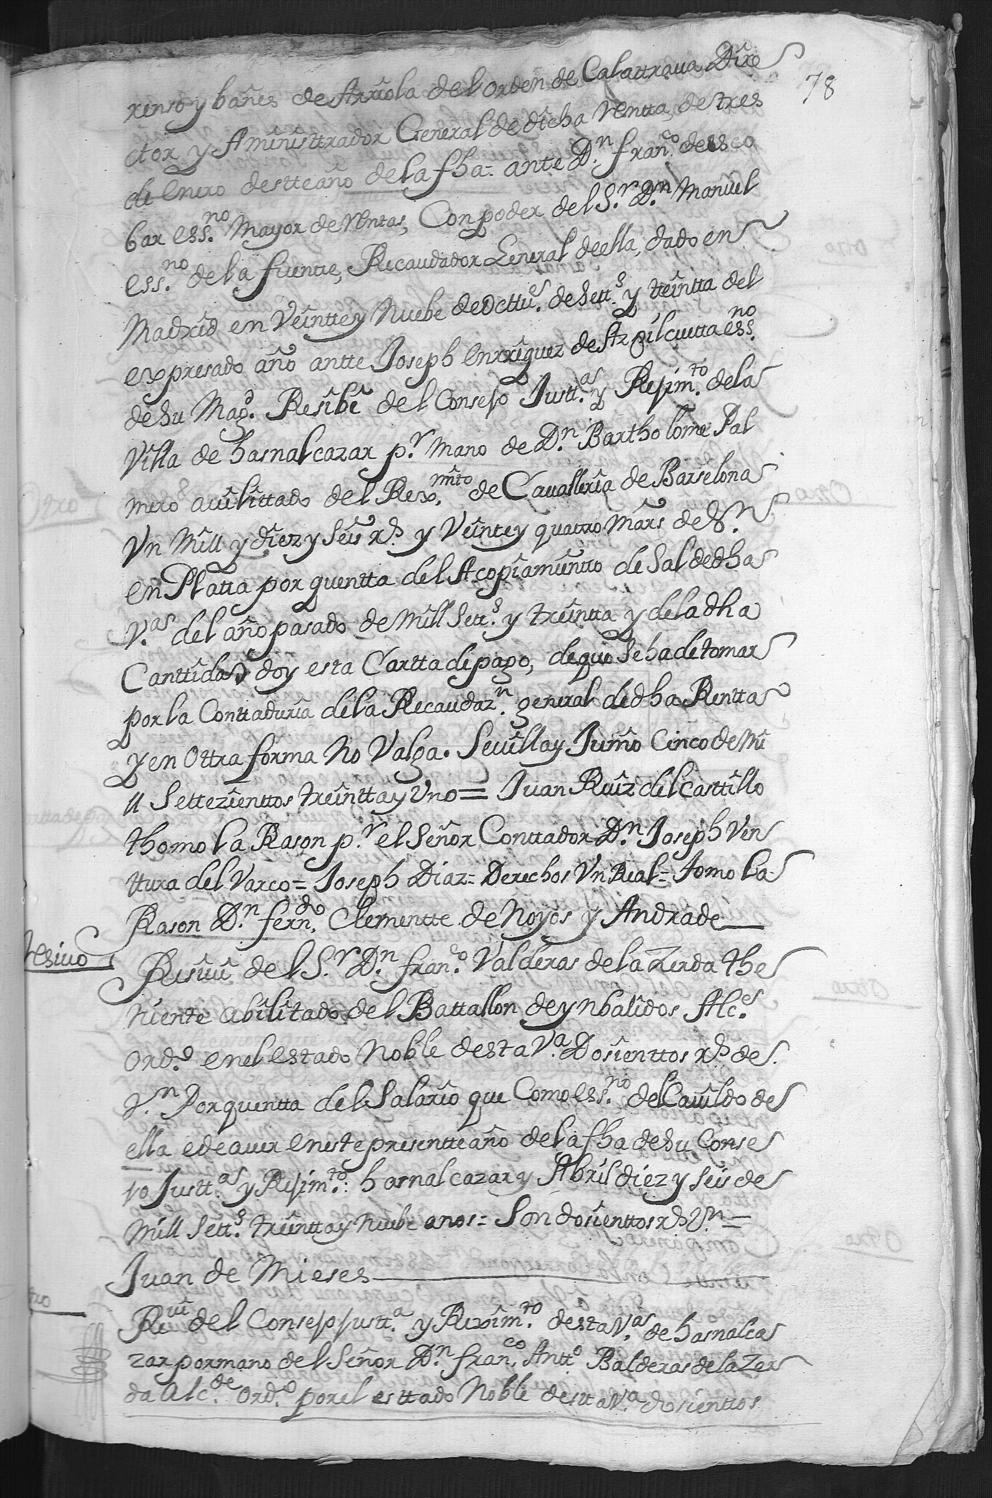 78
renso y bañes de Arriola del orden de Calattraua Dire
ctor y Aministrador General de dicha Rentta, de tres
de Enero destte año de la fha = ante Dn. Frano. de Esco
bar essno. Mayor de Rentas, Con poder del Sr. Dn. Manuel
essno. de la fuente, Recaudador General de ella, dado en
Madrid en Veintte y Nuebe de Octtue. de Setts. y tteintta del
expresado año antte Joseph Enrriquez de Arpilcuetta essno.
de su Magd. Resibi del Consejo Justtas. y Rejimto. de la
Villa de hasnalcazar pr. mano de Dn. Bartholome Pal
mero auilittado del Rexmto. de Caualleria de Barselona
Vn Mill y diez y Seis rs. y Veinte y quatro Mars. de Vn.
en Platta por quentta del Acopiamientto de Sal de dhas
Vas. del año pasado de Mill Setts. y treintta y de la dha
Canttidad doy esta Cartta de pago, de que Se ha de tomar
por la Conttaduria de la Recaudazn. general de dha Rentta
y en Ottra forma No Valga. Seuilla y Junio Cinco de Mi
ll Settezienttos treintta y Uno = Juan Ruiz del Casttillo
thomo la Rason pr. el Señor Conttador Dn. Joseph Ven
ttura del Varco = Joseph Diaz = Derechos Vn Real = tomo la
Rason Dn. Ferndo. Clementte de Noyos y Andrade
Resiuo
Resiui del Sr. Dn. Frano. Valderas de la Zerda the
niente abilitado del Battallon de ynbalidos Alce.
ordo. en el estado Noble de esta Va. Dosienttos rs. de
Vn. Por quentta del Salario que Como essno. del Cauildo de
ella e de auer en este presentte año de la fha de su Conse
jo Justtas. y Rejimto. hasnalcazar y Abril diez y seis de
Mill Setts. treintta y Nuebe anos = Son dosienttos rs. Vn =
Juan de Mieses
Reui. del Consejo justta. y Reximto. desta Vas. de hasnalca
zar por mano del Señor Dn. Franco. Antto. Balderas de la Zer
da Alcde. ordo. por el esttado Noble de estta Va. dosientos